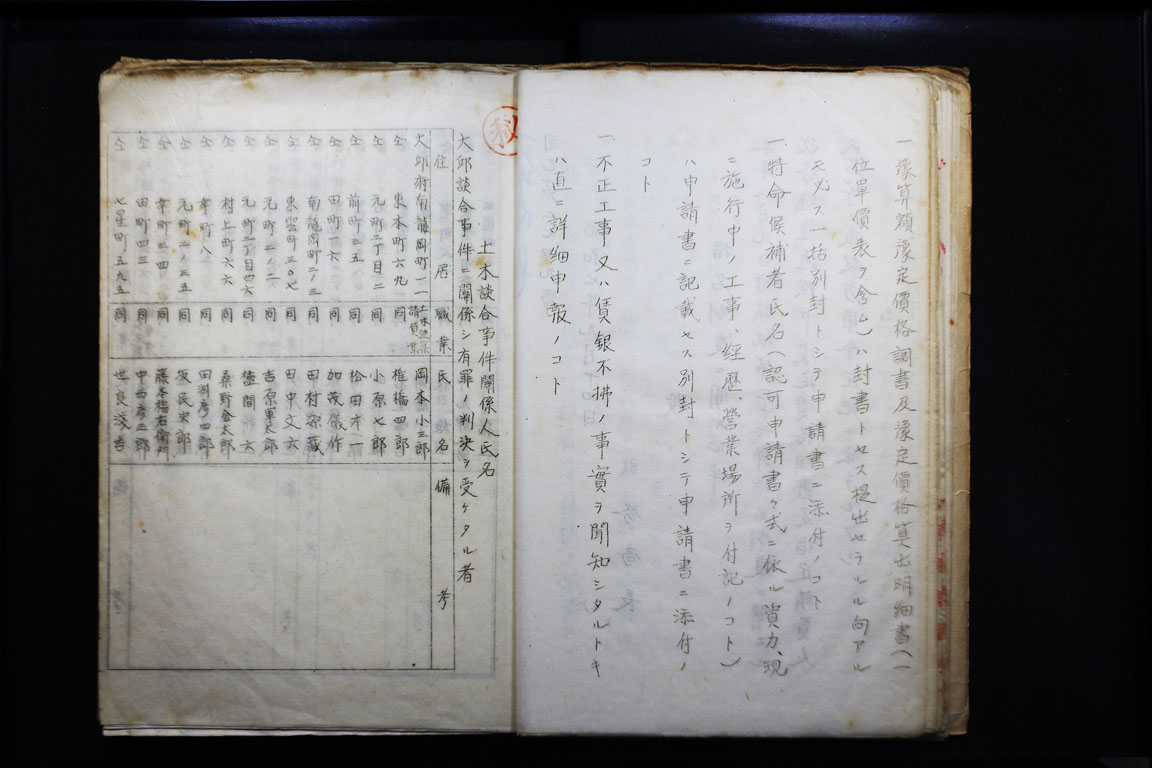 一、豫算額豫定價格調書及豫定價格算出明細書(一
位單價表ヲ含ム)ハ封書トセス提出セラルル向アル
モ必ス一括別封トシテ申請書ニ添付ノコト
一、特命候補者氏名(認可申請書々式ニ依ル資力、現
ニ施行中ノ工事、經歷、營業場所ヲ付記ノコト)
ハ申請書ニ記載セス別封トシテ申請書ニ添付ノ
コト
一、不正工事又ハ賃銀不拂ノ事實ヲ聞知シタルトキ
ハ直ニ詳細申報ノコト
秘
土木談合事件關係人氏名
大邱談合事件ニ關係シ有罪ノ判決ヲ受ケタル者
住居 職業 氏名 備考
大邱府南龍岡町二一 土木建築請負業 岡本小三郎
仝 東本町六九 同 椎橋四郎
仝 元町二丁目二 同 小原七郎
仝 前町三五 同 松田才一
仝 田町一六 同 加茂儀作
仝 南龍岡町二ノ三 同 田村
仝 東雲町三〇七 同 田中文六
仝 元町二ノ二 同 吉原軍太郎
仝 元町二丁目四六 同 間六
仝 村上町六六 同 桑野金太郎
仝 町八 同 田淵彦四郎
仝 元町二ノ三五 同 阪民次郎
仝 町三四 同 藤本梅右衛門
仝 田町四三 同 中西彦三郎
仝 七星町五九五 同 世良